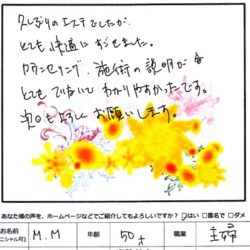 久しぶりのエステでしたが、
とても快適にすごせました。
カウンセリング、施術の説明が
とてもていねいでわかりやすかったです。
次回も宜しくお願いします。
あなた様の声を、ホームページなどでご紹介してもよろしいですか？ ☑はい □匿名で □ダメ
お名前 M.M 年齢 50才 職業 主婦
(イニシャル可)